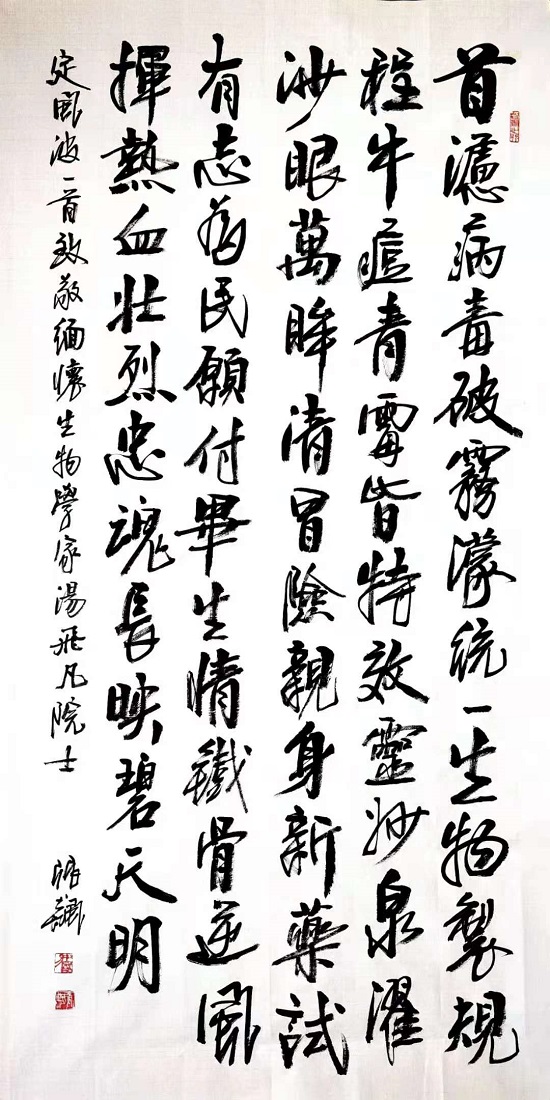 首濾病毒破霧濛統一生物製規
程牛痘青霉皆特效靈妙泉濯
沙眼萬眸清冒險親身新藥試
有志為民願付畢生情鐵骨逆風
揮熱血壯烈忠魂長映碧天明
定風波一首致敬緬懷生物學家湯飛凡院士